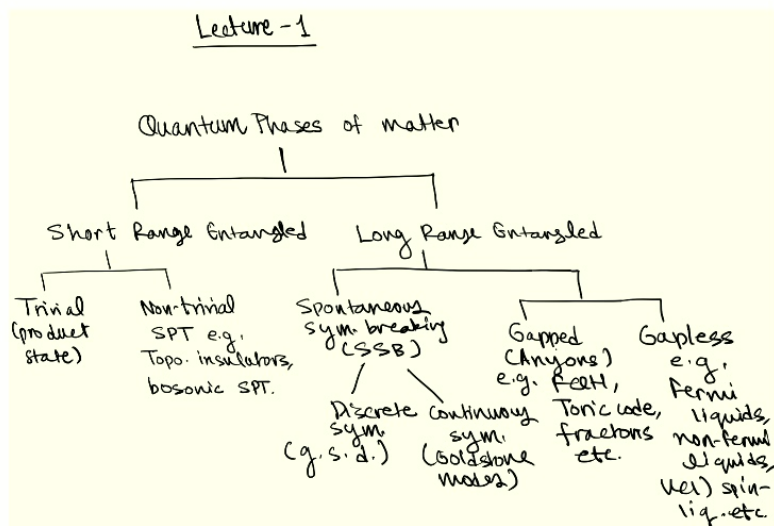 Lecture - 1
Quantum Phases of matter
Short Range Entangled
Long Range Entangled
Trivial
(product
state)
Non-trivial
SPT e.g.
Topo. insulators,
bosonic SPT.
Spontaneous
sym. breaking
(SSB)
Discrete
sym.
(g.s.d.)
Continuous
sym.
(Goldstone
modes)
Gapped
(Anyons)
e.g. FQH,
Toric code,
fractons
etc.
Gapless
e.g.
Fermi
liquids,
non-fermi
liquids,
spin-
liq. etc.